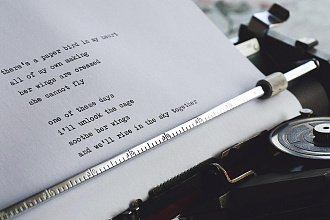 there's a paper bird in my heart
all of my own making
her wings are creased
she cannot fly
one of these days
i'll unlock the cage
soothe her wings
and we'll rise in the sky together